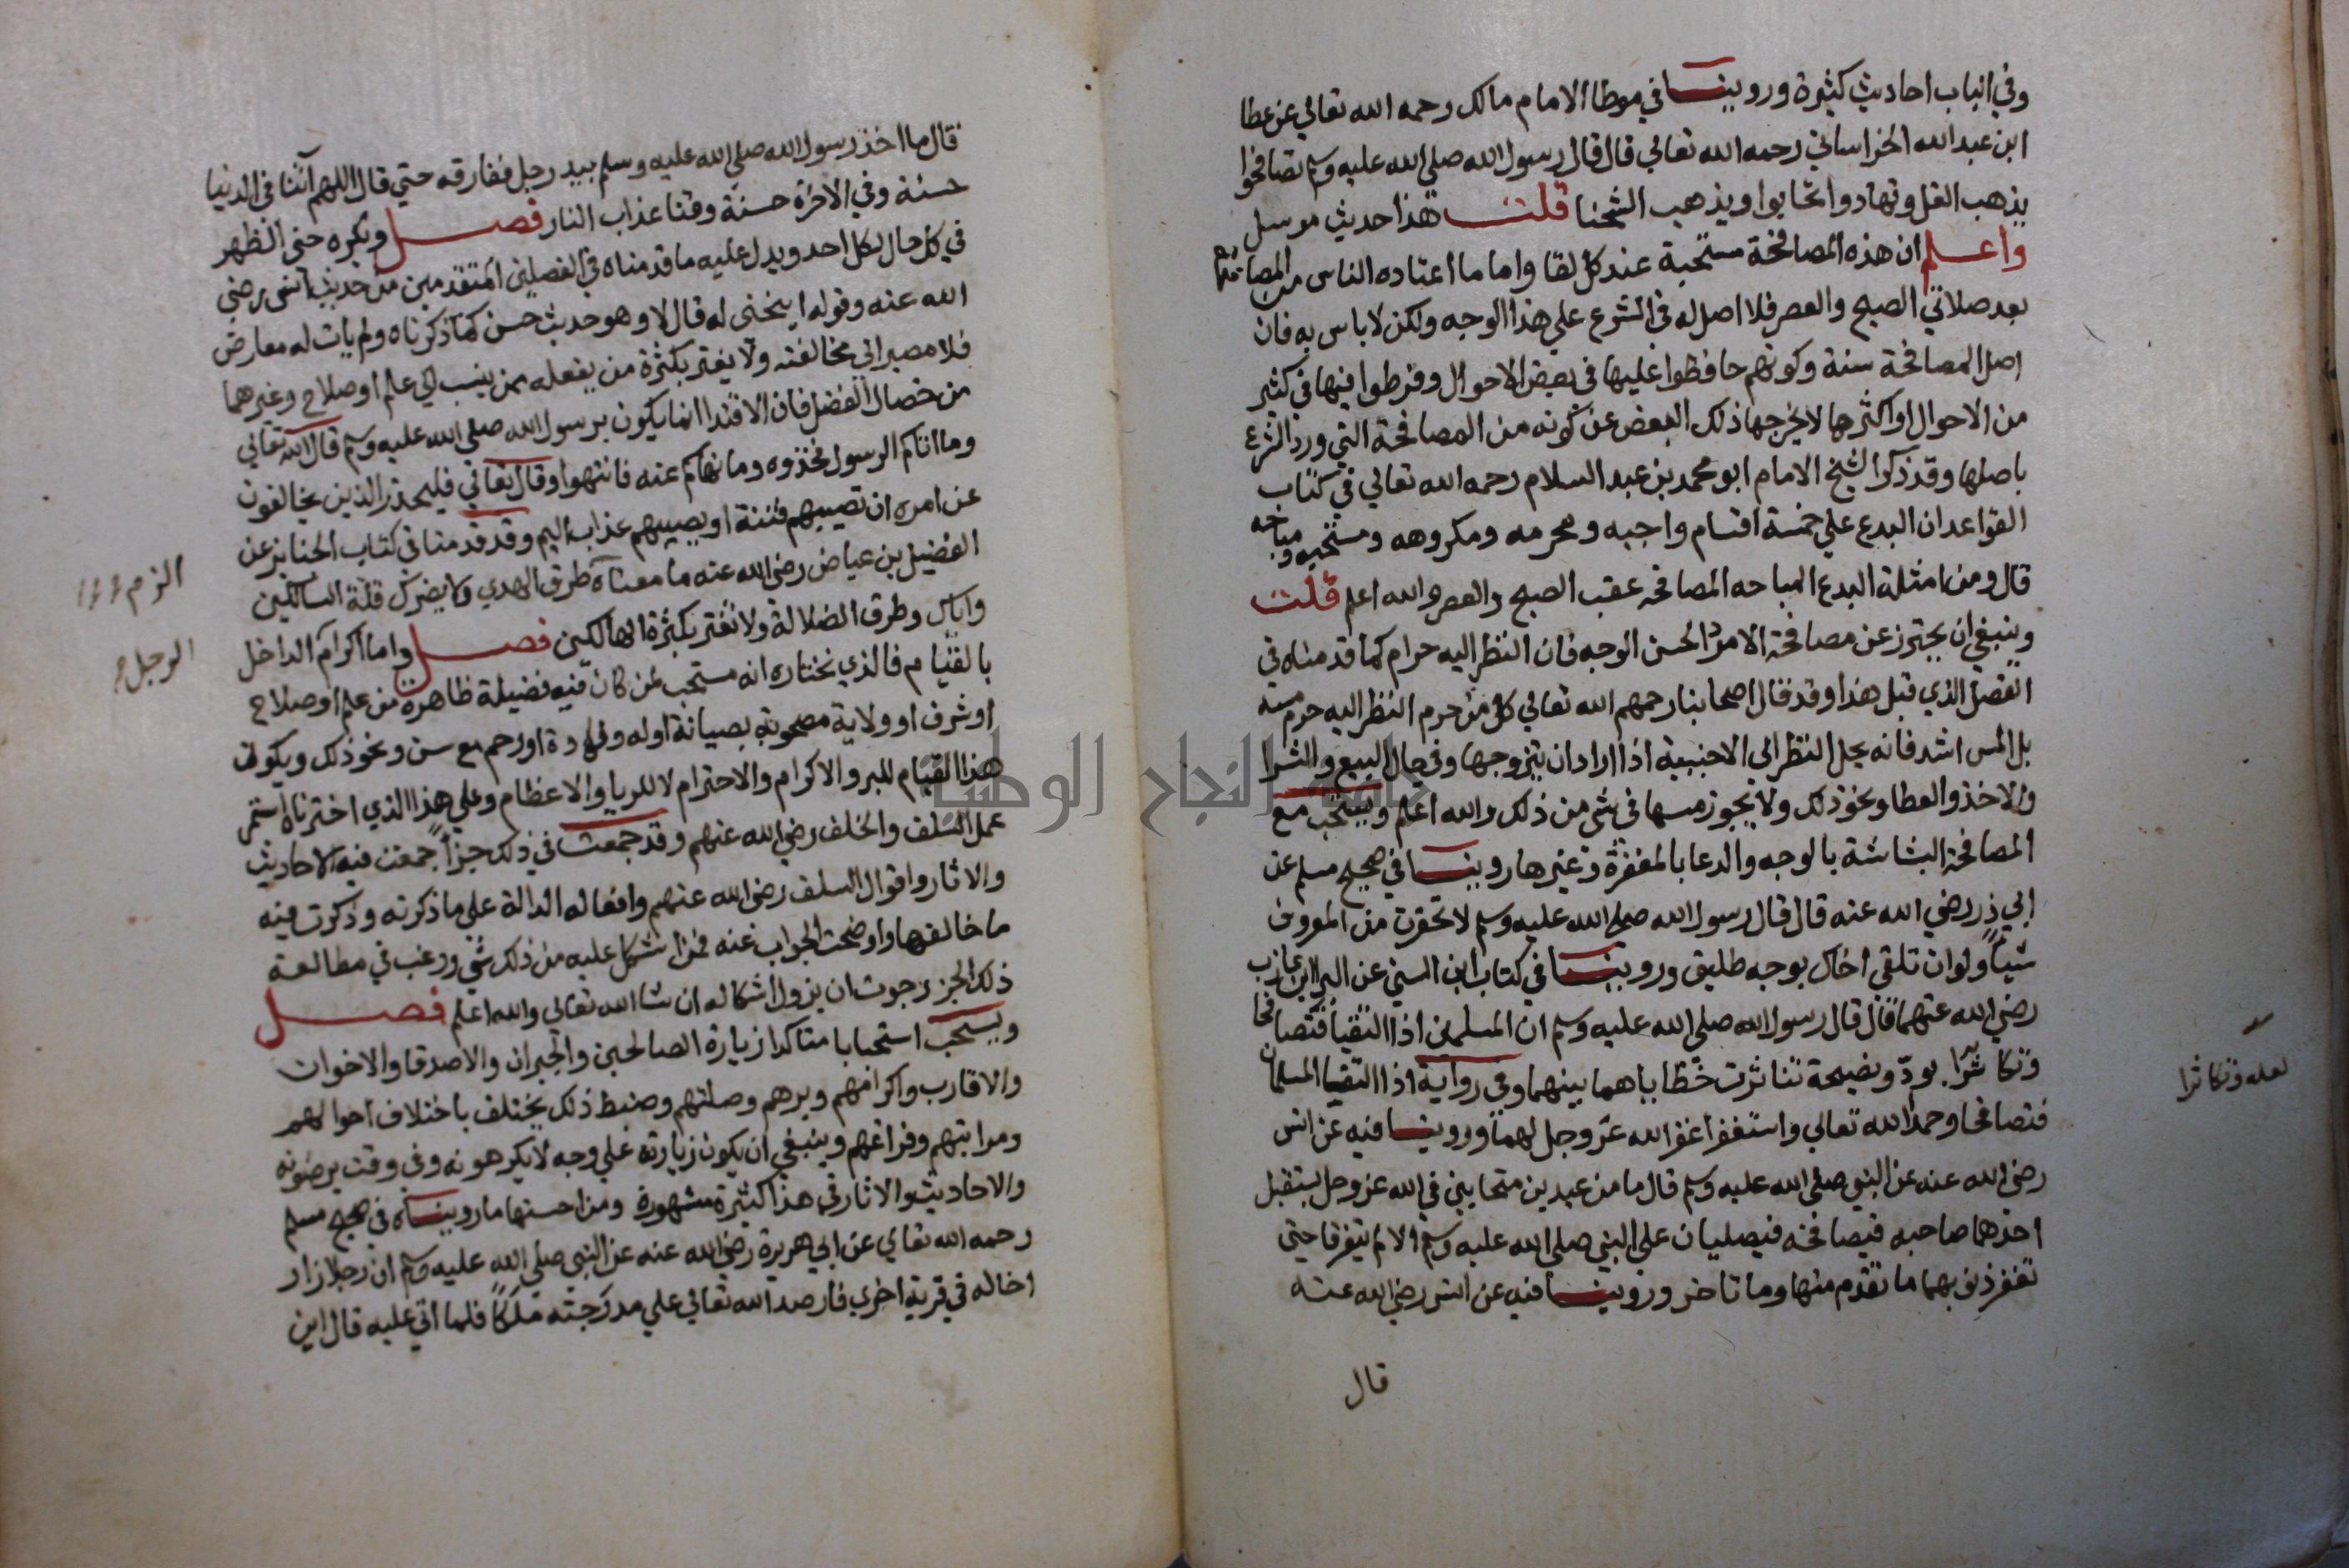 وفي الباب احاديث كثيرة وروينا في موطا الامام مالك رحمه الله تعالي عن عطا
ابن عبد الله الخراساني رحمه الله تعالي قال قال رسول الله صلي الله عليه وسلم تصافحوا
يذهب الغل وتهادوا تحابوا ويذهب الشحنا قلت هذا حديث مرسل
واعلم ان هذه المصافحة مستحبة عند كل لقا واما ما اعتاده الناس من المصافحة
بعد صلاتي الصبح والعصر فلا اصل له في الشرع علي هذا الوجه ولكن لا باس به فان
اصل المصافحة سنة وكونهم حافظوا عليها في بعض الاحوال وفرطوا فيها في كثير
من الاحوال او اكثرها لا يخرجها ذلك البعض عن كونه من المصافحة التي ورد الشرع
باصلها وقد ذكر الشيخ الامام ابو محمد بن عبد السلام رحمه الله تعالي في كتاب
القواعد ان البدع علي خمسة اقسام واجبه ومحرمه ومكروهه ومستحبه ومباحه
قال ومن امثلة البدع المباحه المصافحه عقب الصبح والعصر والله اعلم قلت
وينبغي ان يحترز عن مصافحة الامرد الحسن الوجه فان النظر اليه حرام كما قدمناه في
الفصل الذي قبل هذا وقد قال اصحابنا رحمهم الله تعالي كل من حرم النظر اليه حرم مسه
بل المس اشد فانه يحل النظر الي الاجنبية اذا اراد ان يتزوجها وفي حال البيع والشرا
والاخذ والعطا ونحو ذلك ولا يجوز مسها في شي من ذلك والله اعلم ويستحب مع
المصافحة البشاشة بالوجه والدعا بالمغفرة وغيرها روينا في صحيح مسلم عن
ابي ذر رضي الله عنه قال قال رسول الله صلي الله عليه وسلم لا تحقرن من المعروف
شيأ ولو ان تلقي اخاك بوجه طليق وروينا في كتاب ابن السني عن البرا ابن عازب
رضي الله عنهما قال قال رسول الله صلي الله عليه وسلم ان المسلمين اذا التقيا فتصافحا
وتكاشرا بود ونصيحة تناثرت خطاياهما بينهما وفي رواية اذا التقيا المسلمان
فتصافحا وحمدا الله تعالي واستغفرا غفر الله عز وجل لهما وروينا فيه عن انس
رضي الله عنه عن النبي صلي الله عليه وسلم قال ما من عبدين متحابين في الله عز وجل يستقبل
احدهما صاحبه فيصافحه فيصليان علي النبي صلي الله عليه وسلم الا لم يتفرقا حتي
تغفر ذنوبهما ما تقدم منها وما تاخر وروينا فيه عن انس رضي الله عنه
قال
لعله وتكاثرا
قال ما اخذ رسول الله صلي الله عليه وسلم بيد رجل ففارقه حتي قال اللهم آتنا في الدنيا
حسنة وفي الاخرة حسنة وقنا عذاب النار فصل ويكره حني الظهر
في كل حال لكل احد ويدل عليه ما قدمناه في الفصلين المتقدمين من حديث انس رضي
الله عنه وقوله اينحني له قال لا وهو حديث حسن كما ذكرناه ولم يات له معارض
فلا مصير الي مخالفته ولا يغتر بكثرة من يفعله ممن ينسب الي علم او صلاح وغيرهما
من خصال الفضل فان الاقتدا انما يكون برسول الله صلي الله عليه وسلم قال الله تعالي
وما اتاكم الرسول فخذوه وما نهاكم عنه فانتهوا وقال تعالي فليحذر الذين يخالفون
عن امره ان تصيبهم فتنة او يصيبهم عذاب اليم وقد قدمنا في كتاب الجنايز عن
الفضيل بن عياض رضي الله عنه ما معناه طرق الهدي ولا يضرك قلة السالكين
واياك وطرق الضلالة ولا تغتر بكثرة الهالكين فصل واما اكرام الداخل
بالقيام فالذي نختاره انه مستحب لمن كان فيه فضيلة ظاهرة من علم او صلاح
او شرف او ولاية مصحوبة بصيانة اوله ولادة او رحم مع سن ونحو ذلك ويكون
هذا القيام للبر والاكرام والاحترام لا للريا والاعظام وعلي هذا الذي اخترناه استمر
عمل السلف والخلف رضي الله عنهم وقد جمعت في ذلك جزأ جمعت فيه الاحاديث
والاثار واقوال السلف رضي الله عنهم وافعاله الدالة علي ما ذكرته وذكرت فيه
ما خالفها واوضحت الجواب عنه فمن اشكل عليه من ذلك شي ورغب في مطالعة
ذلك الجز رجوت ان يزول اشكاله ان شا الله تعالي والله اعلم فصل
ويستحب استحبابا متاكدا زيارة الصالحين والجيران والاصدقا والاخوان
والاقارب واكرامهم وبرهم وصلتهم وضبط ذلك يختلف باختلاف احوالهم
ومراتبهم وفراغهم وينبغي ان يكون زيارته علي وجه لا يكرهونه وفي وقت يرضونه
والاحاديث والاثار في هذا كثيرة مشهورة ومن احسنها ما رويناه في صحيح مسلم
رحمه الله تعالي عن ابي هريرة رضي الله عنه عن النبي صلي الله عليه وسلم ان رجلا زار
اخا له في قرية اخري فارصد الله تعالي علي مدرجته ملكا فلما اتي عليه قال اين
الزم
النجاح الوطنية